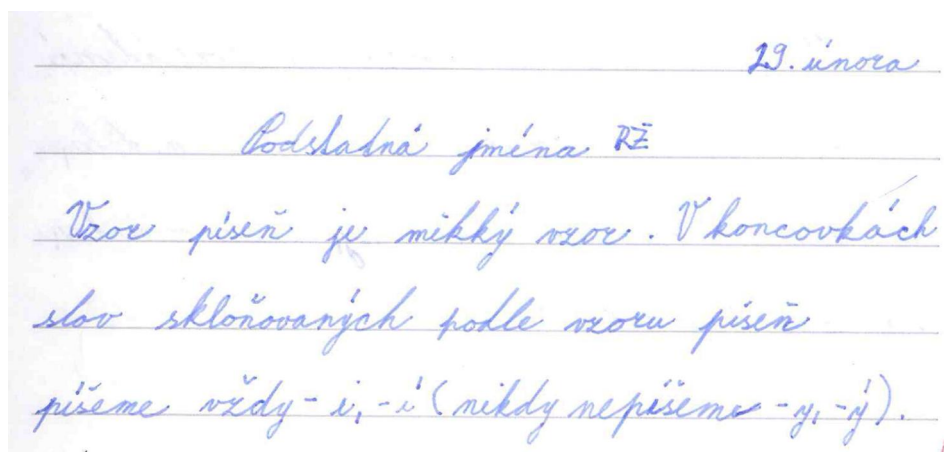 29. února
Podstatná jména RŽ
Vzor píseň je mikký vzor. V koncovkách
slov skloňovaných podle vzoru píseň
píšeme vždy - i, -í (nikdy nepíšeme -y, -ý).